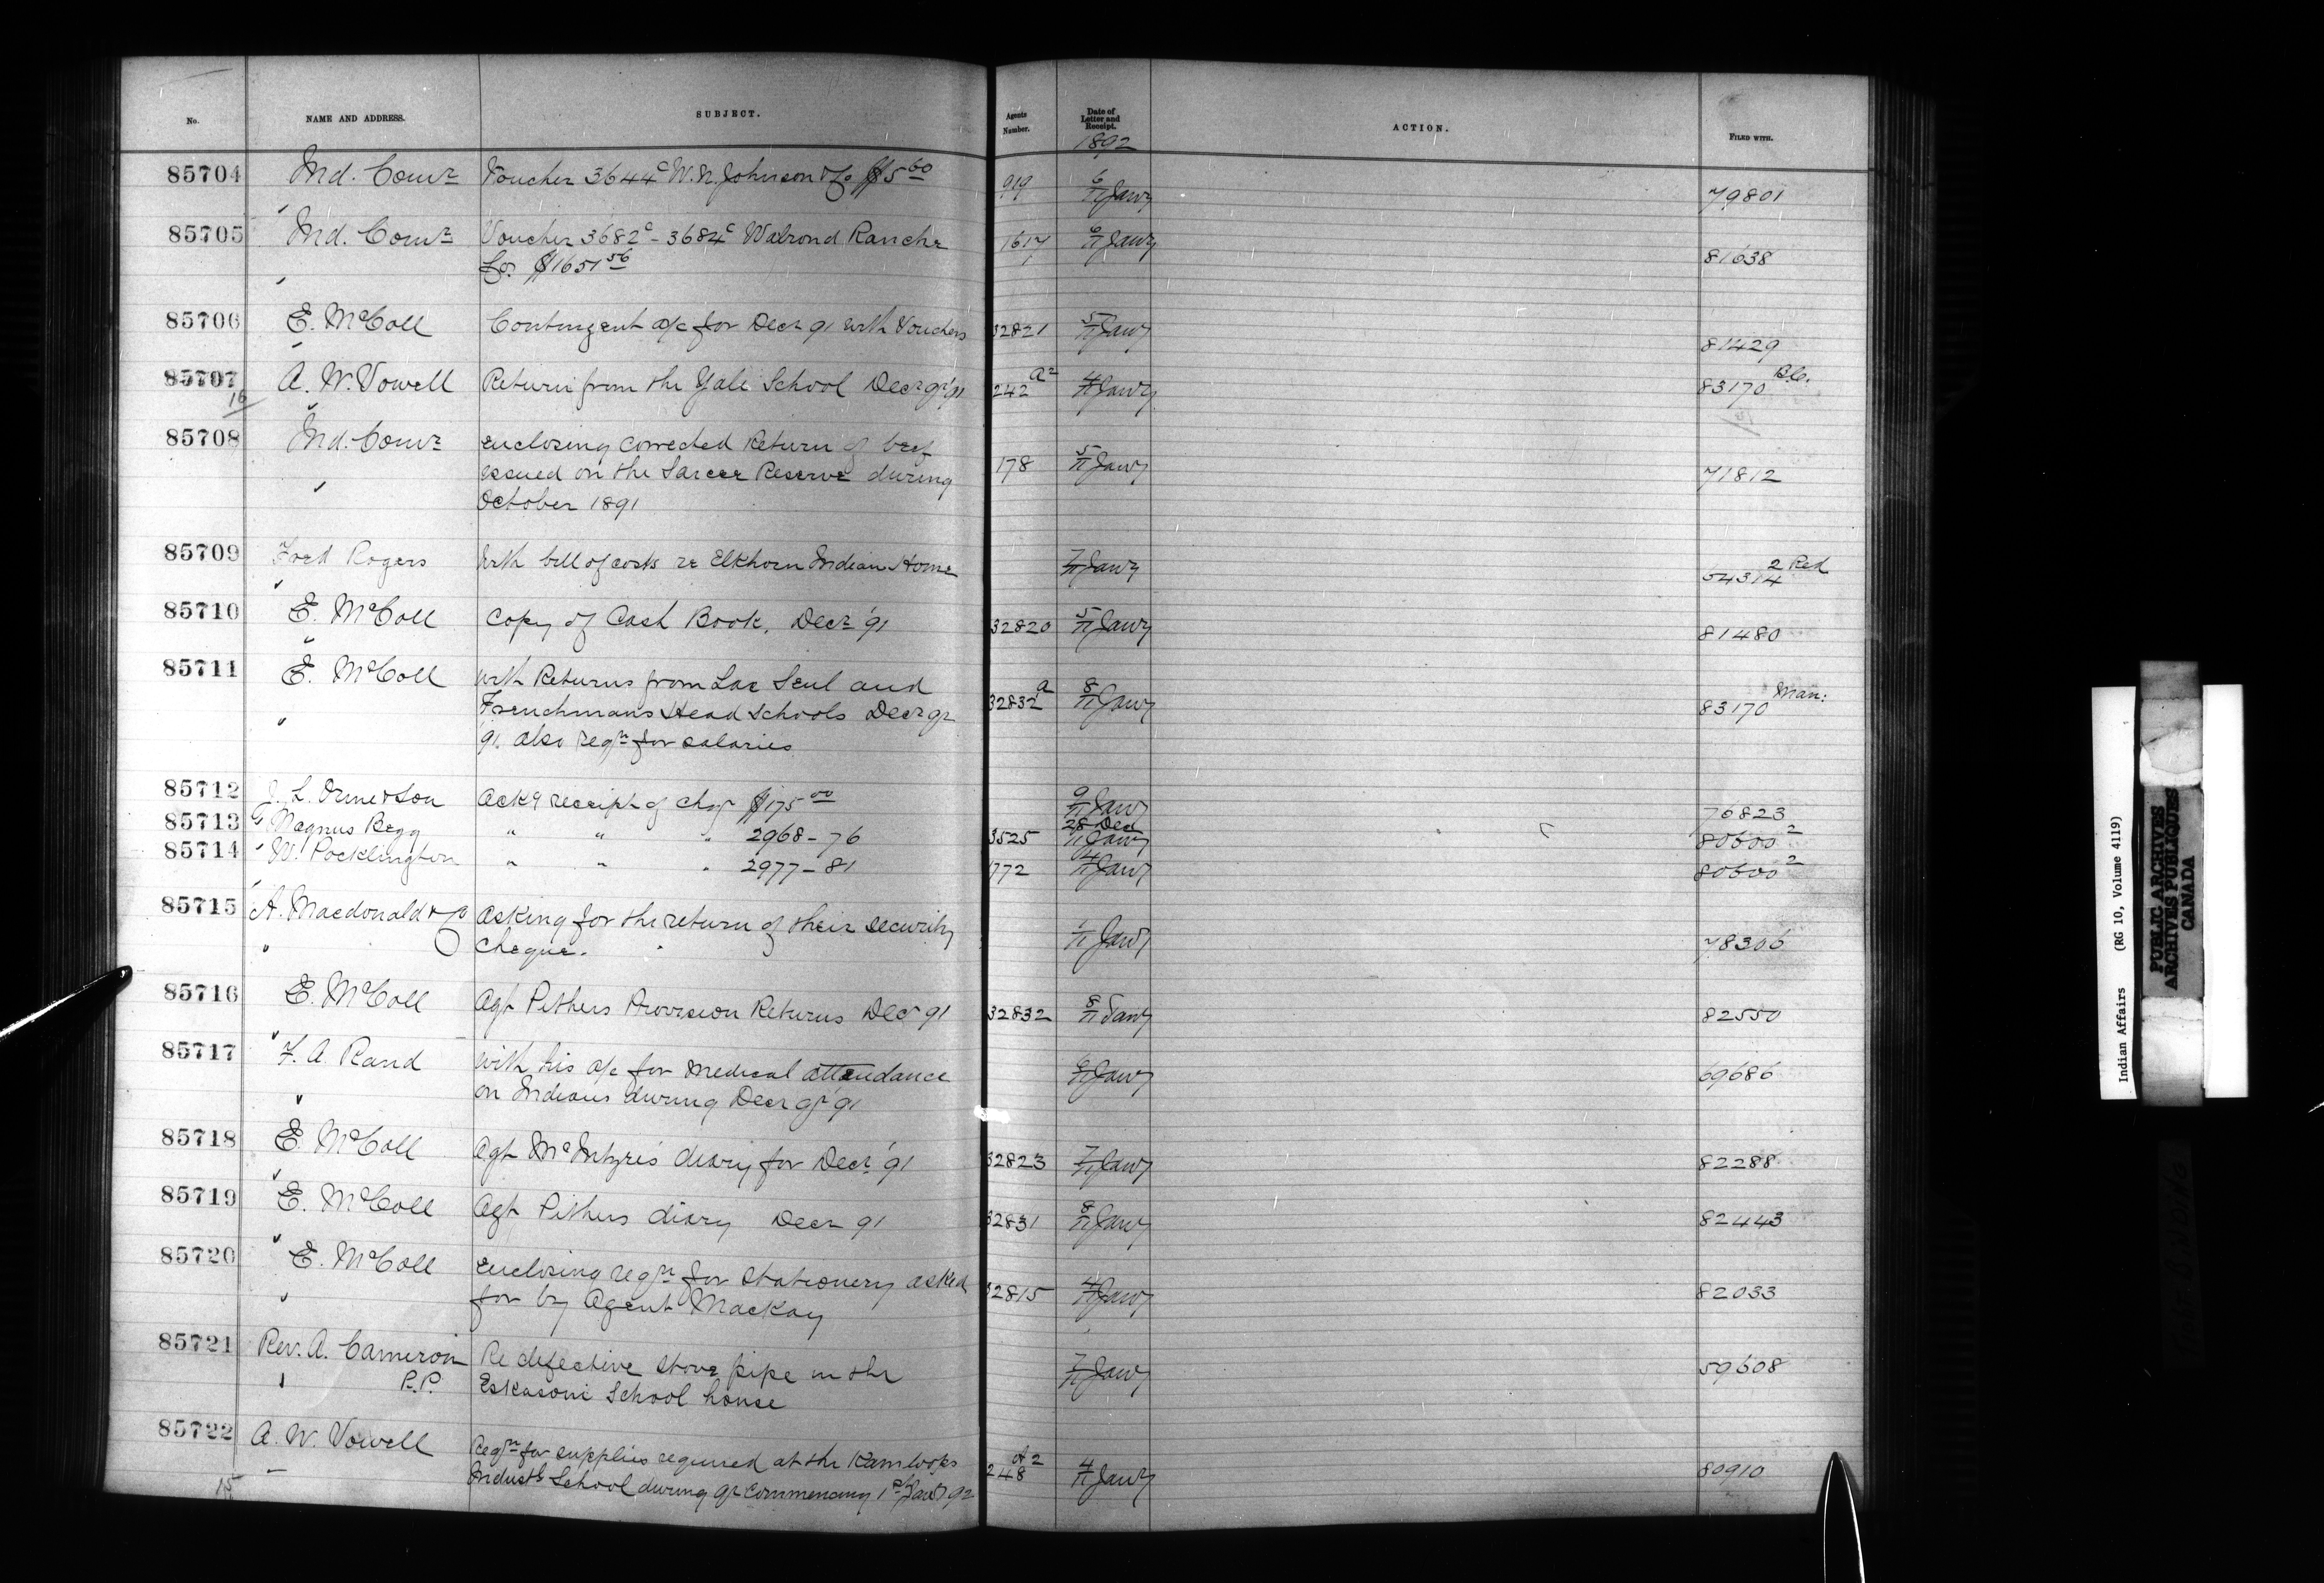 No. NAME AND ADDRESS. SUBJECT. Agents Number. Date of Letter and Receipt. ACTION. FILED WITH.
1892
85704 Ind. Comr Voucher 3644c W. N. Johnson & Co $5.60 919 6/11 Jany 79801
85705 Ind. Comr Voucher 3682c - 3684c Walrond Ranche 1617 6/11 Jany 81638
Co. $1651.56
85706 E. McColl Contingent a/c for Decr 91 with Vouchers 32821 5/11 Jany 81429
85707 A. W. Vowell Return from the Yale School Decr qr '91 242 a2 4/11 Jany 83170 B.C.
16
85708 Ind. Comr enclosing corrected Return of beef
issued on the Sarcee Reserve during 178 5/11 Jany 71812
October 1891
85709 Fred Rogers With bill of costs re Elkhorn Indian Home 7/11 Jany 54314 2 Red
85710 E. McColl Copy of Cash Book, Decr '91 32820 5/11 Jany 81480
85711 E. McColl with Returns from Lac Seul and
Frenchmans Head Schools Decr qr 32832 a 8/11 Jany 83170 Man:
91. also reqn for salaries
85712 J. L. Orme & Son Ackg receipt of chq $175.00 9/11 Jany 76823
85713 Magnus Begg " " " 2968-76 3525 28 Dec 11 Jany 80600 2
85714 W. Pocklington " " " 2977-81 772 4/11 Jany 80600 2
85715 A. Macdonald & Co Asking for the return of their security
cheque. 1/11 Jany 78306
85716 E. McColl Agt Pithers Provision Returns Decr 91 32832 8/11 Jany 82550
85717 F. A. Rand with his a/c for medical attendance 6/11 Jany 69686
on Indians during Decr qr '91
85718 E. McColl Agt McIntyre's diary for Decr '91 32823 7/11 Jany 82288
85719 E. McColl Agt Pithers diary Decr 91 32831 8/11 Jany 82443
85720 E. McColl Enclosing reqn for Stationery asked
for by Agent Mackay 32815 4/11 Jany 82033
85721 Rev. A. Cameron Re defective stove pipe in the 7/11 Jany 59608
P.P. Eskasoni School house
85722 A. W. Vowell Reqn for supplies required at the Kamloops
15 Industl School during qr commencing 1st Jany 92 248 A2 4/11 Jany 80910
Indian Affairs (RG 10, Volume 4119)
PUBLIC ARCHIVES
ARCHIVES PUBLIQUES
CANADA